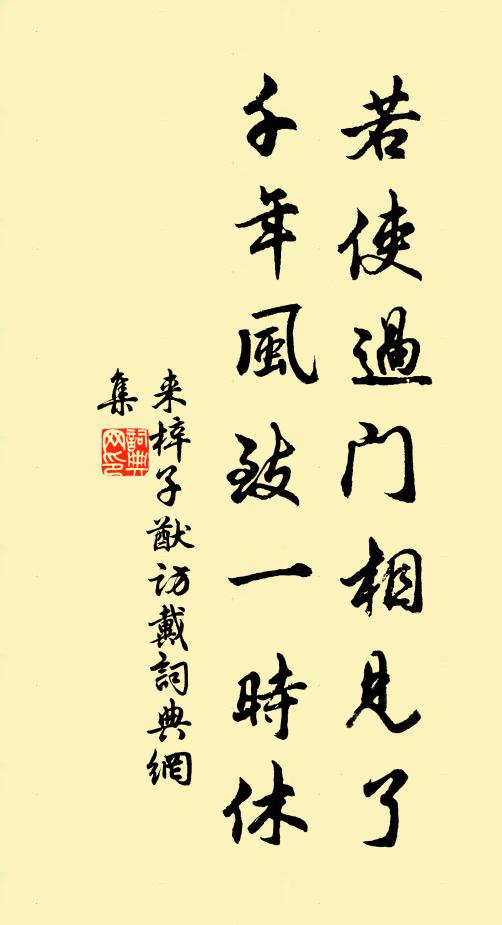 若使過门相見了
千年風致一時休
来梓子猷访戴詞典網
集
詞典
网印